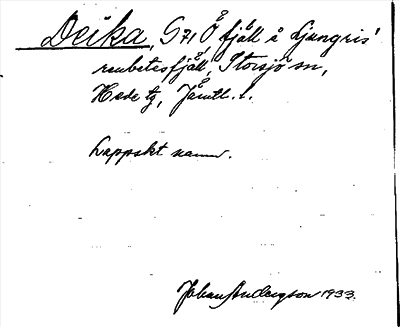 Deika, G 71 Ö fjäll å Ljungris'
renbetesfjäll, Storsjö sn,
Hede tg, Jämtl. l.
Lappskt namn.
Johan Andersson 1933.